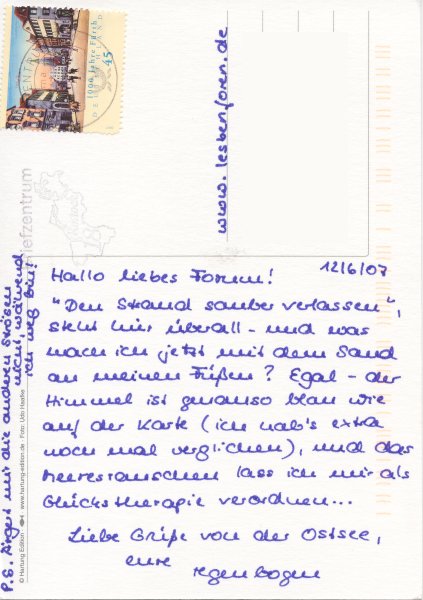 1000 Jahre Fürth
45
www.lesbenforen.de
iefzentrum
18
12/6/07
Hallo liebes Forum!
"Den Strand sauber verlassen",
steht hier überall - und was
mach ich jetzt mit dem Sand
an meinen Füßen? Egal - der
Himmel ist genauso blau wie
auf der Karte (ich hab's extra
noch mal verglichen), und das
Meeresrauschen lass ich mir als
Glückstherapie verordnen...
Liebe Grüße von der Ostsee,
eure
regenbogen
P.S. Ärgert mir die anderen Strösen
nicht, während
ich weg bin!
© Hartung Edition www.hartung-edition.de · Foto: Udo Haafke